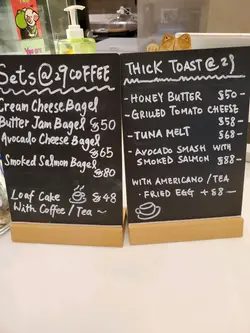 Sets@29COFFEE
Cream Cheese Bagel
Butter Jam Bagel $50
Avocado Cheese Bagel
$65
Smoked Salmon Bagel
$80
Loaf Cake $48
With Coffee / Tea ~
THICK TOAST @ 29
- HONEY BUTTER $50 -
- GRILLED TOMATO CHEESE
$58 -
- TUNA MELT $68 -
- AVOCADO SMASH WITH
SMOKED SALMON $88 -
WITH AMERICANO / TEA
- FRIED EGG + $8 -